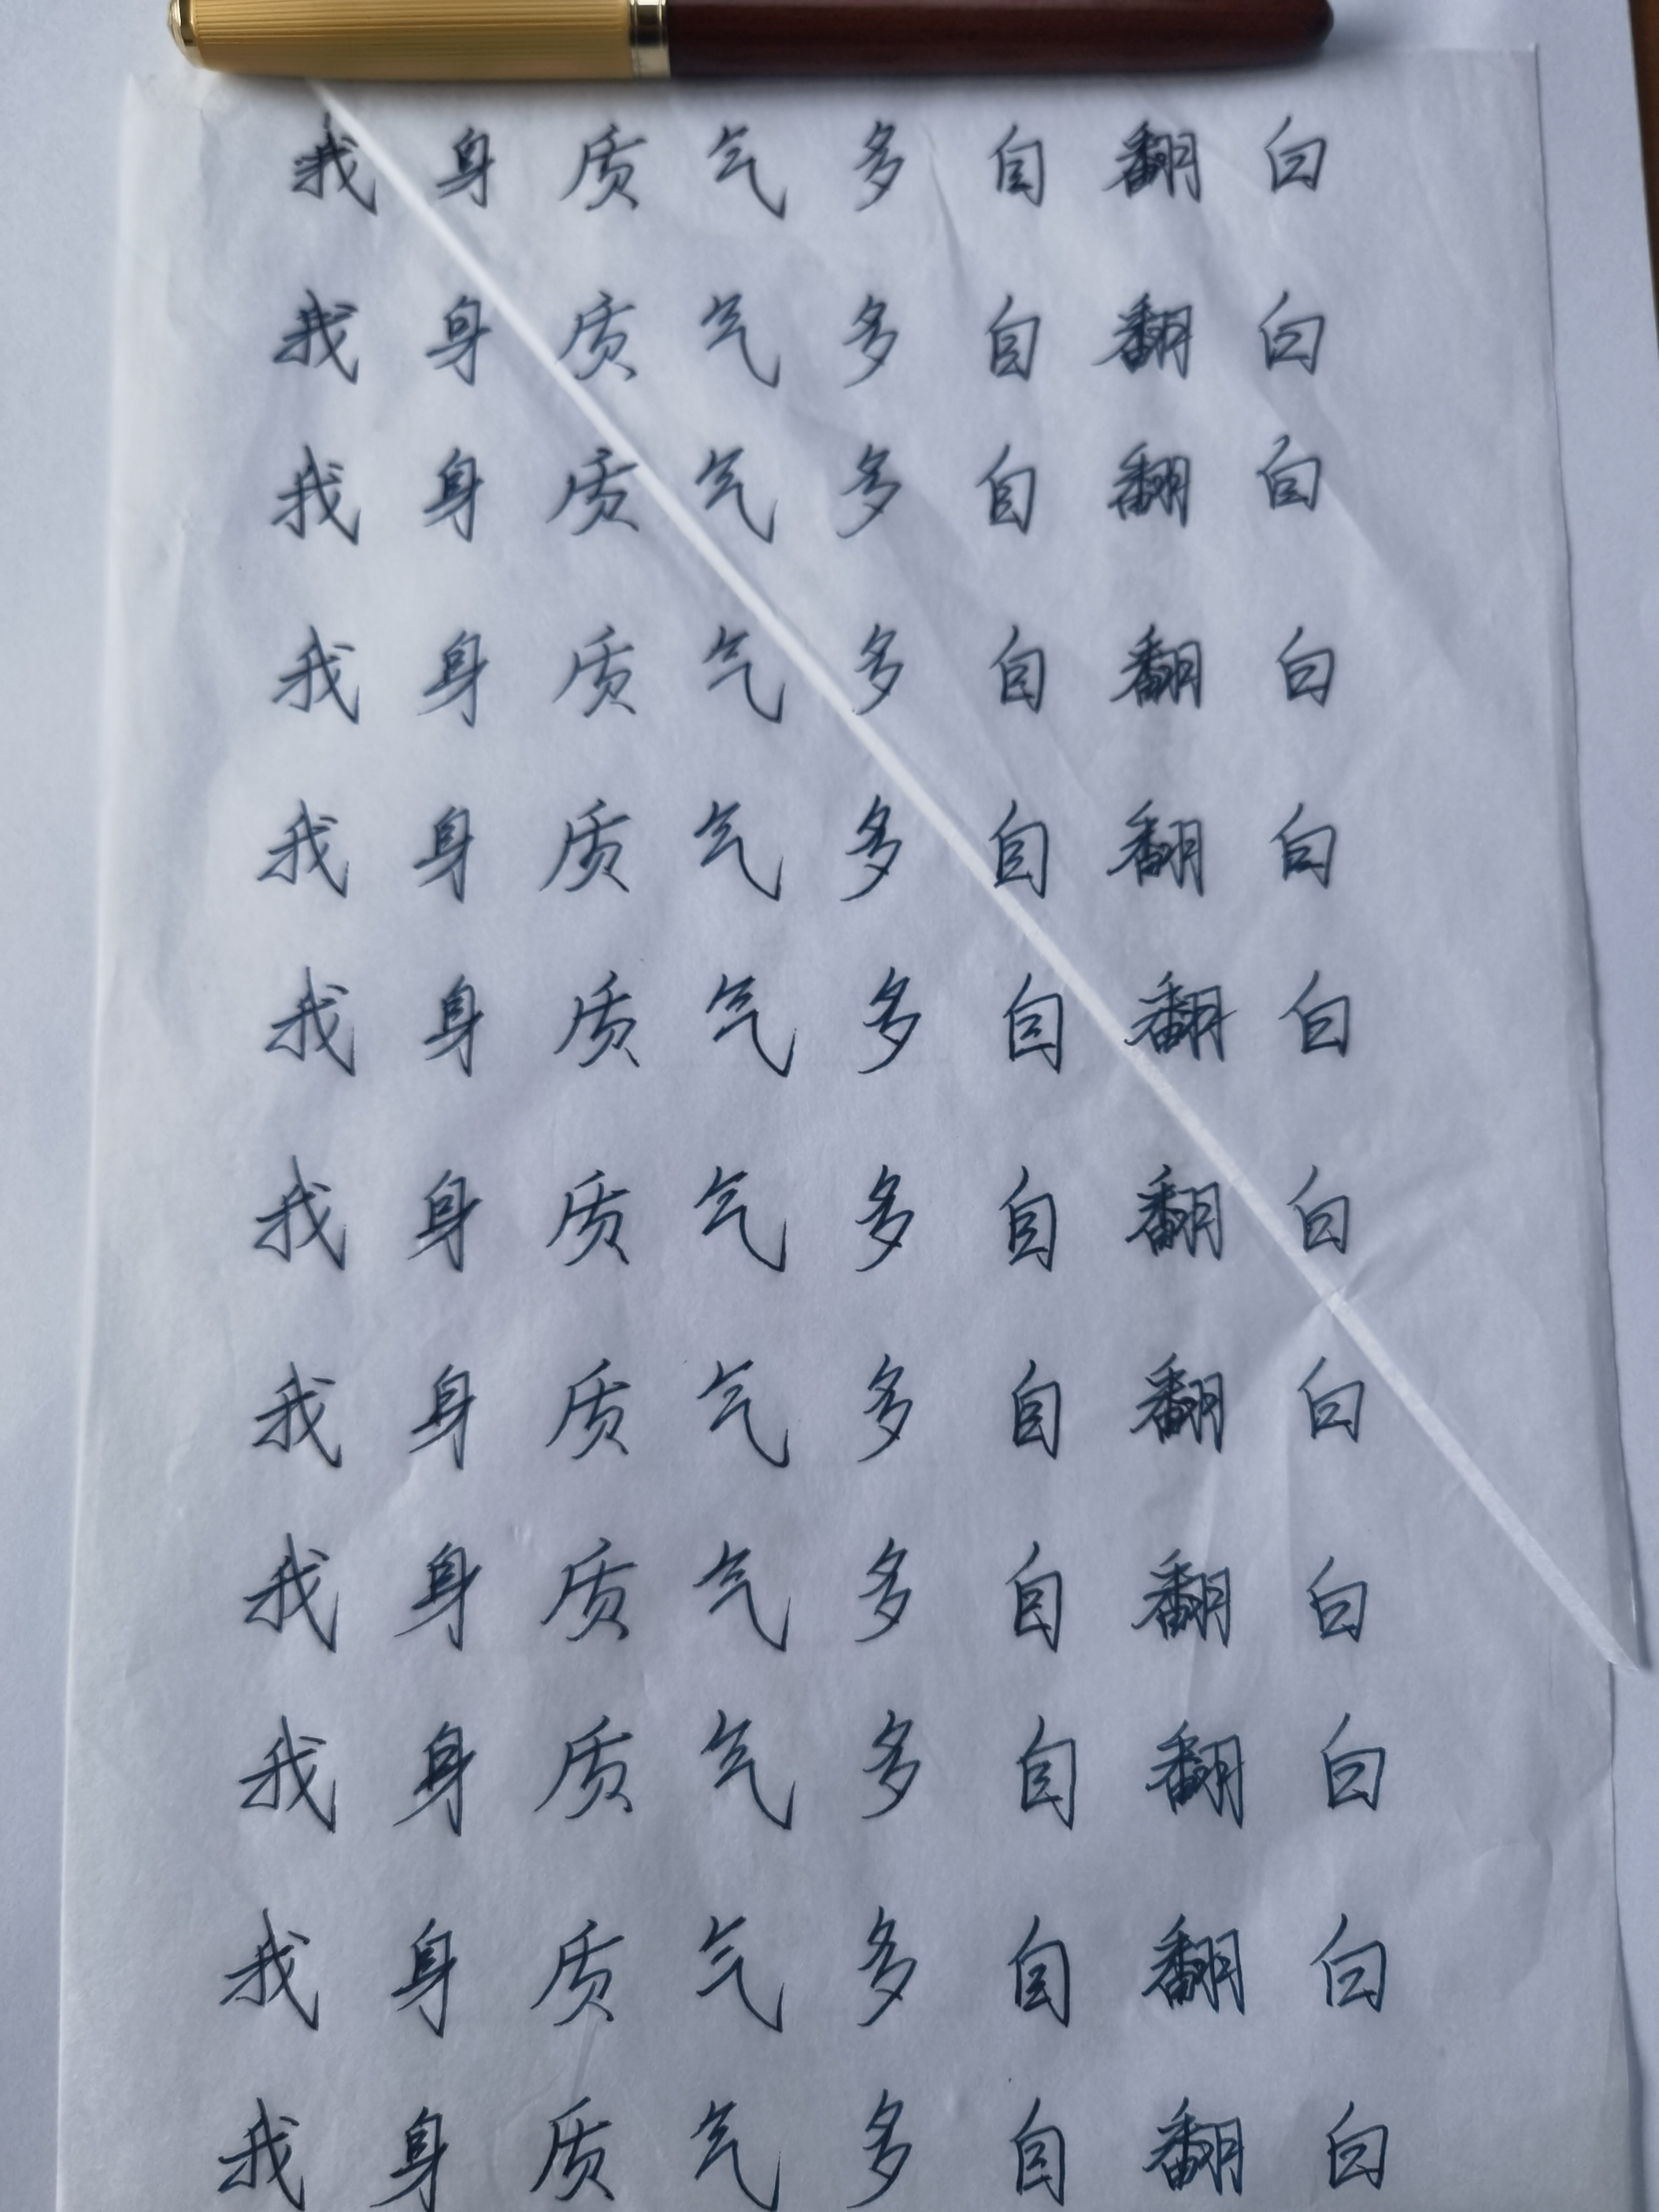 我身质气多自翻白
我身质气多自翻白
我身质气多自翻白
我身质气多自翻白
我身质气多自翻白
我身质气多自翻白
我身质气多自翻白
我身质气多自翻白
我身质气多自翻白
我身质气多自翻白
我身质气多自翻白
我身质气多自翻白